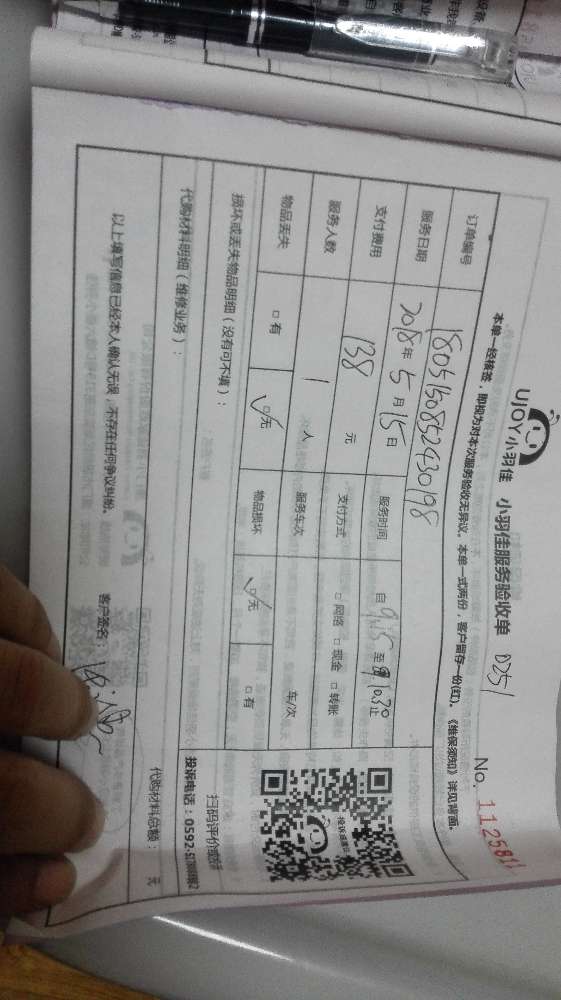 UJOY小羽佳 小羽佳服务验收单 D251
No. 112581
本单一经核签，即视为对本次服务验收无异议。本单一式两份，客户留存一份(红)。《维保须知》详见背面。
订单编号 180515085243098
服务日期 2018年5月15日 服务时间 自9:15至
支付费用 138 元 支付方式 □网络 □现金 □转账
服务人数 1 人 服务车次 车/次
物品丢失 □有 ☑无 物品损坏 ☑无 □有
扫码评价或
投诉电话：0592-
损坏或丢失物品明细（没有可不填）：
代购材料明细（维修业务）：
代购材料总额： 元
以上填写信息已经本人确认无误，不存在任何争议纠纷。 客户签名：